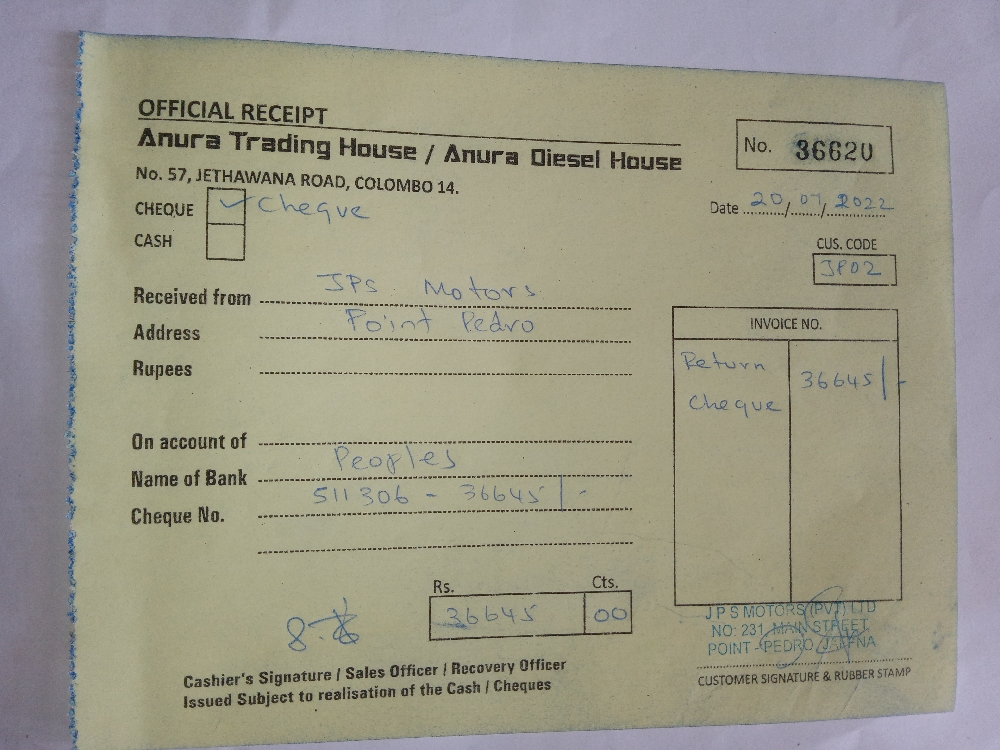 OFFICIAL RECEIPT
Anura Trading House / Anura Diesel House
No. 36620
No. 57, JETHAWANA ROAD, COLOMBO 14.
CHEQUE ✓ Cheque
Date 20/07/2022
CASH
CUS. CODE
JP02
Received from JPS Motors
Address Point Pedro
INVOICE NO.
Rupees
Return 36645/-
Cheque
On account of
Name of Bank Peoples
Cheque No. 511306 - 36645/-
Rs. Cts.
36645 00
J P S MOTORS (PVT) LTD
NO: 231, MAIN STREET,
POINT - PEDRO, JAFFNA
Cashier's Signature / Sales Officer / Recovery Officer
CUSTOMER SIGNATURE & RUBBER STAMP
Issued Subject to realisation of the Cash / Cheques